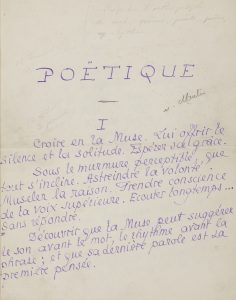 POËTIQUE
I
Croire en la Muse. Lui offrir le
silence et la solitude. Espérer sa grâce.
Sous le murmure perceptible, que
tout s'incline. Astreindre la volonté,
Museler la raison. Prendre conscience
de la voix supérieure. Écouter longtemps...
sans répondre.
Découvrir que la Muse peut suggérer
le son avant le mot, le rythme avant la
phrase ; et que sa dernière parole est la
première pensée.